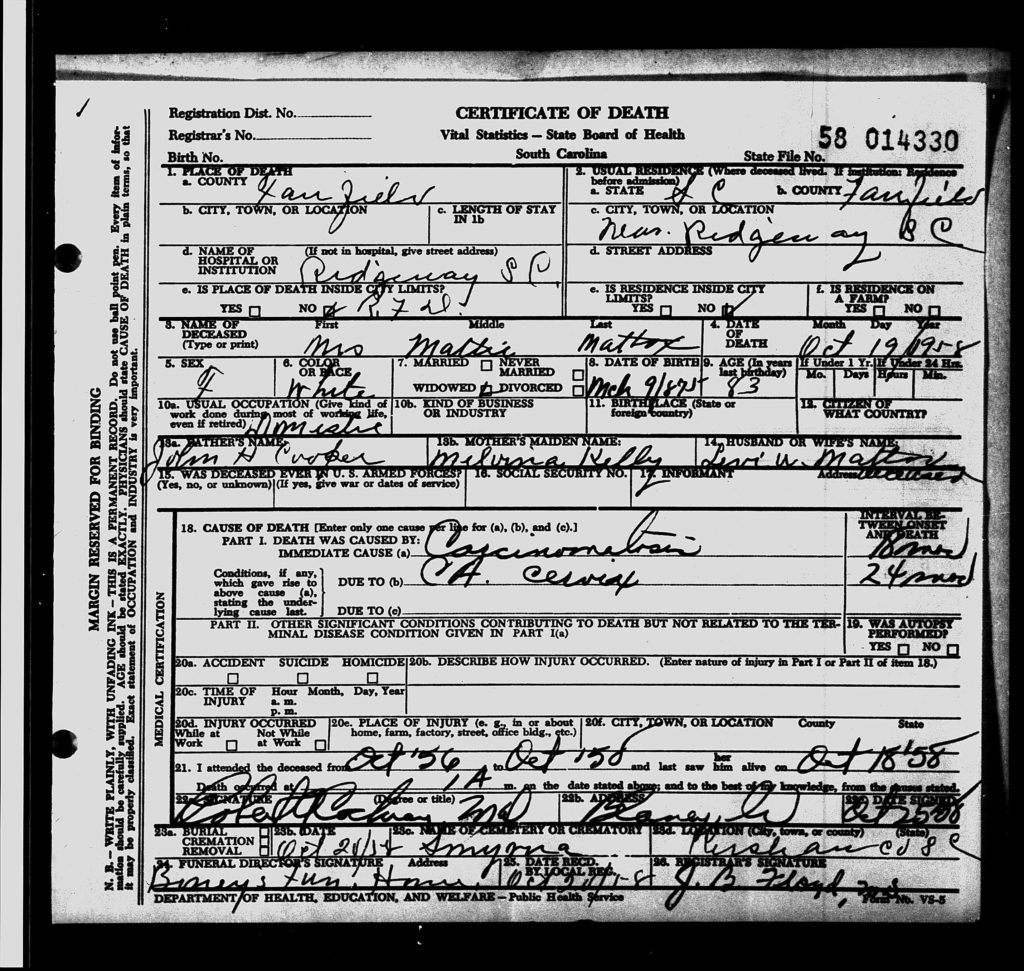 1
Registration Dist. No.
CERTIFICATE OF DEATH
Registrar's No.
Vital Statistics — State Board of Health
58 014330
Birth No.
South Carolina
State File No.
1. PLACE OF DEATH
a. COUNTY Fairfield
2. USUAL RESIDENCE (Where deceased lived. If institution: Residence before admission)
a. STATE S C b. COUNTY Fairfield
b. CITY, TOWN, OR LOCATION
c. LENGTH OF STAY IN 1b
c. CITY, TOWN, OR LOCATION
Near Ridgeway S C
d. NAME OF HOSPITAL OR INSTITUTION (If not in hospital, give street address)
Ridgeway S C.
d. STREET ADDRESS
e. IS PLACE OF DEATH INSIDE CITY LIMITS?
YES NO R. F. D.
e. IS RESIDENCE INSIDE CITY LIMITS?
YES NO
f. IS RESIDENCE ON A FARM?
YES NO
3. NAME OF DECEASED (Type or print)
First Middle Last
Mrs Mattie Mattox
4. DATE OF DEATH
Month Day Year
Oct 19 1958
5. SEX
F
6. COLOR OR RACE
White
7. MARRIED NEVER MARRIED
WIDOWED DIVORCED
8. DATE OF BIRTH
Mch 9/1875
9. AGE (In years last birthday)
83
If Under 1 Yr. If Under 24 Hrs.
Mo. Days Hours Min.
10a. USUAL OCCUPATION (Give kind of work done during most of working life, even if retired)
Domestic
10b. KIND OF BUSINESS OR INDUSTRY
11. BIRTHPLACE (State or foreign country)
12. CITIZEN OF WHAT COUNTRY?
13a. FATHER'S NAME:
John Cooper
13b. MOTHER'S MAIDEN NAME:
Melvina Kelly
14. HUSBAND OR WIFE'S NAME:
Levi W. Mattox
deceased
15. WAS DECEASED EVER IN U. S. ARMED FORCES?
(Yes, no, or unknown) (If yes, give war or dates of service)
16. SOCIAL SECURITY NO.
17. INFORMANT Address
18. CAUSE OF DEATH [Enter only one cause per line for (a), (b), and (c).]
INTERVAL BETWEEN ONSET AND DEATH
PART I. DEATH WAS CAUSED BY:
IMMEDIATE CAUSE (a) Carcinomatosis 18 mos
Conditions, if any, which gave rise to above cause (a), stating the underlying cause last.
DUE TO (b) CA. cervix 24 mos
DUE TO (c)
PART II. OTHER SIGNIFICANT CONDITIONS CONTRIBUTING TO DEATH BUT NOT RELATED TO THE TERMINAL DISEASE CONDITION GIVEN IN PART I(a)
19. WAS AUTOPSY PERFORMED?
YES NO
20a. ACCIDENT SUICIDE HOMICIDE
20b. DESCRIBE HOW INJURY OCCURRED. (Enter nature of injury in Part I or Part II of item 18.)
20c. TIME OF INJURY
Hour Month, Day, Year
a. m.
p. m.
20d. INJURY OCCURRED
While at Work Not While at Work
20e. PLACE OF INJURY (e. g., in or about home, farm, factory, street, office bldg., etc.)
20f. CITY, TOWN, OR LOCATION County State
21. I attended the deceased from Oct '56 to Oct '58 and last saw him her alive on Oct 18 '58
Death occurred at 1 A m. on the date stated above; and to the best of my knowledge, from the causes stated.
22a. SIGNATURE (Degree or title)
Robert Cochran MD
22b. ADDRESS
Blaney, SC
22c. DATE SIGNED
23a. BURIAL
CREMATION
REMOVAL
23b. DATE
Oct 20/58
23c. NAME OF CEMETERY OR CREMATORY
Smyrna
23d. LOCATION (City, town, or county) (State)
Kershaw Co S C
24. FUNERAL DIRECTOR'S SIGNATURE Address
Boney's Fun. Home.
25. DATE RECD. BY LOCAL REG.
26. REGISTRAR'S SIGNATURE
J. B. Floyd,
DEPARTMENT OF HEALTH, EDUCATION, AND WELFARE — Public Health Service
Form No. VS-5
MARGIN RESERVED FOR BINDING
N. B. — WRITE PLAINLY, WITH UNFADING INK — THIS IS A PERMANENT RECORD. Do not use ball point pen. Every item of information should be carefully supplied. AGE should be stated EXACTLY. PHYSICIANS should state CAUSE OF DEATH in plain terms, so that it may be properly classified. Exact statement of OCCUPATION and INDUSTRY is very important.
MEDICAL CERTIFICATION